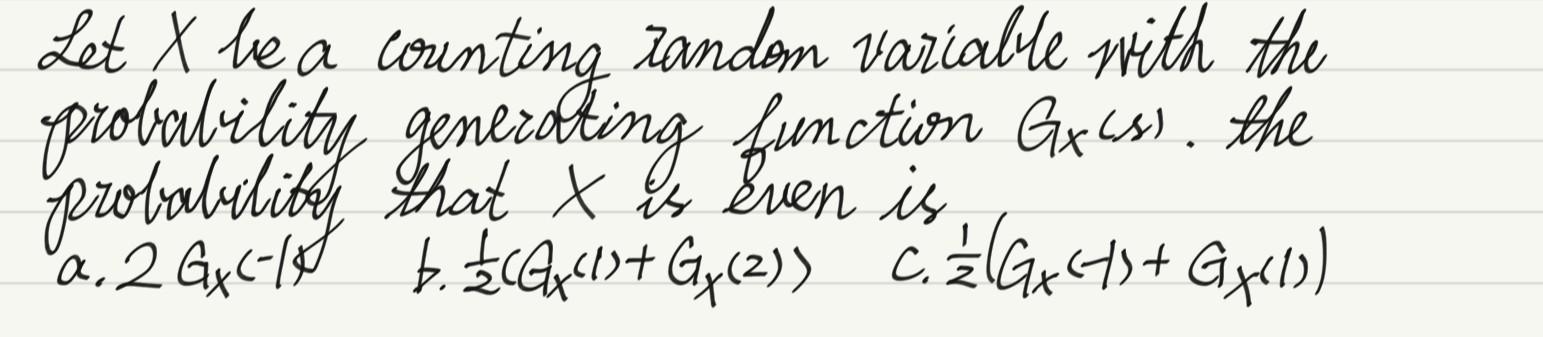 Let X be a counting random variable with the
probability generating function Gx(s). the
probability that X is even is
a. 2 Gx(-1) b. ½(Gx(1)+ Gx(2)) c. ½(Gx(-1)+ Gx(1))